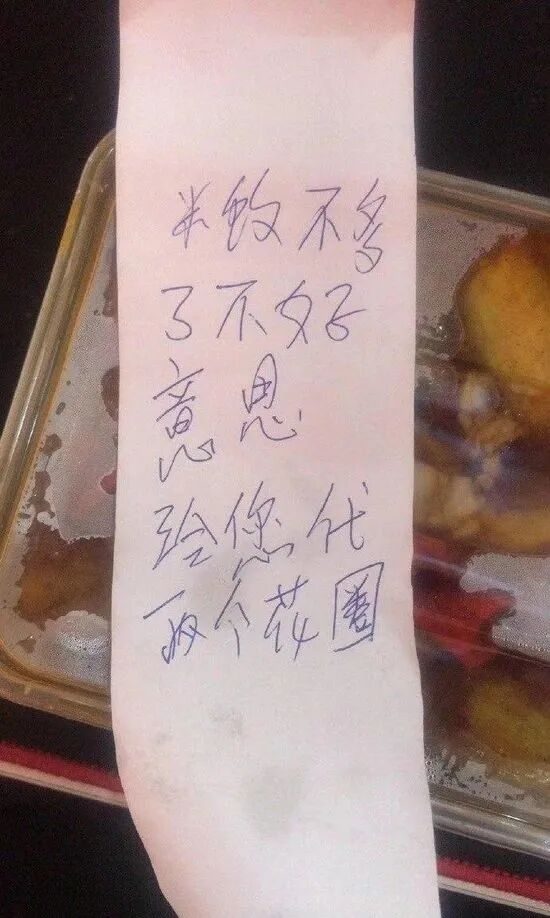 米饭不多
了不好
意思
给您代
两个花圈